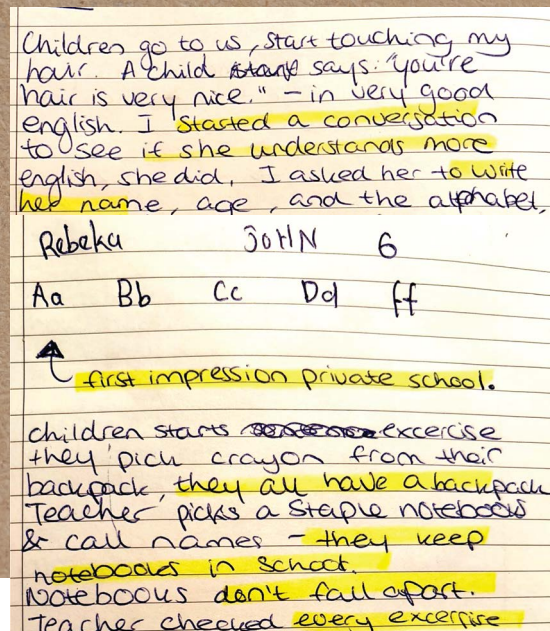 Children go to us, start touching my
hair. A child says: "you're
hair is very nice." – in very good
english. I started a conversation
to see if she understands more
english, she did. I asked her to write
her name, age, and the alphabet,
Rebeka JOHN 6
Aa Bb Cc Dd ff
first impression private school.
children starts excercise
they pick crayon from their
backpack, they all have a backpack
Teacher picks a staple notebooks
& call names – they keep
notebooks in school.
Notebooks don't fall apart.
Teacher checked every excercise